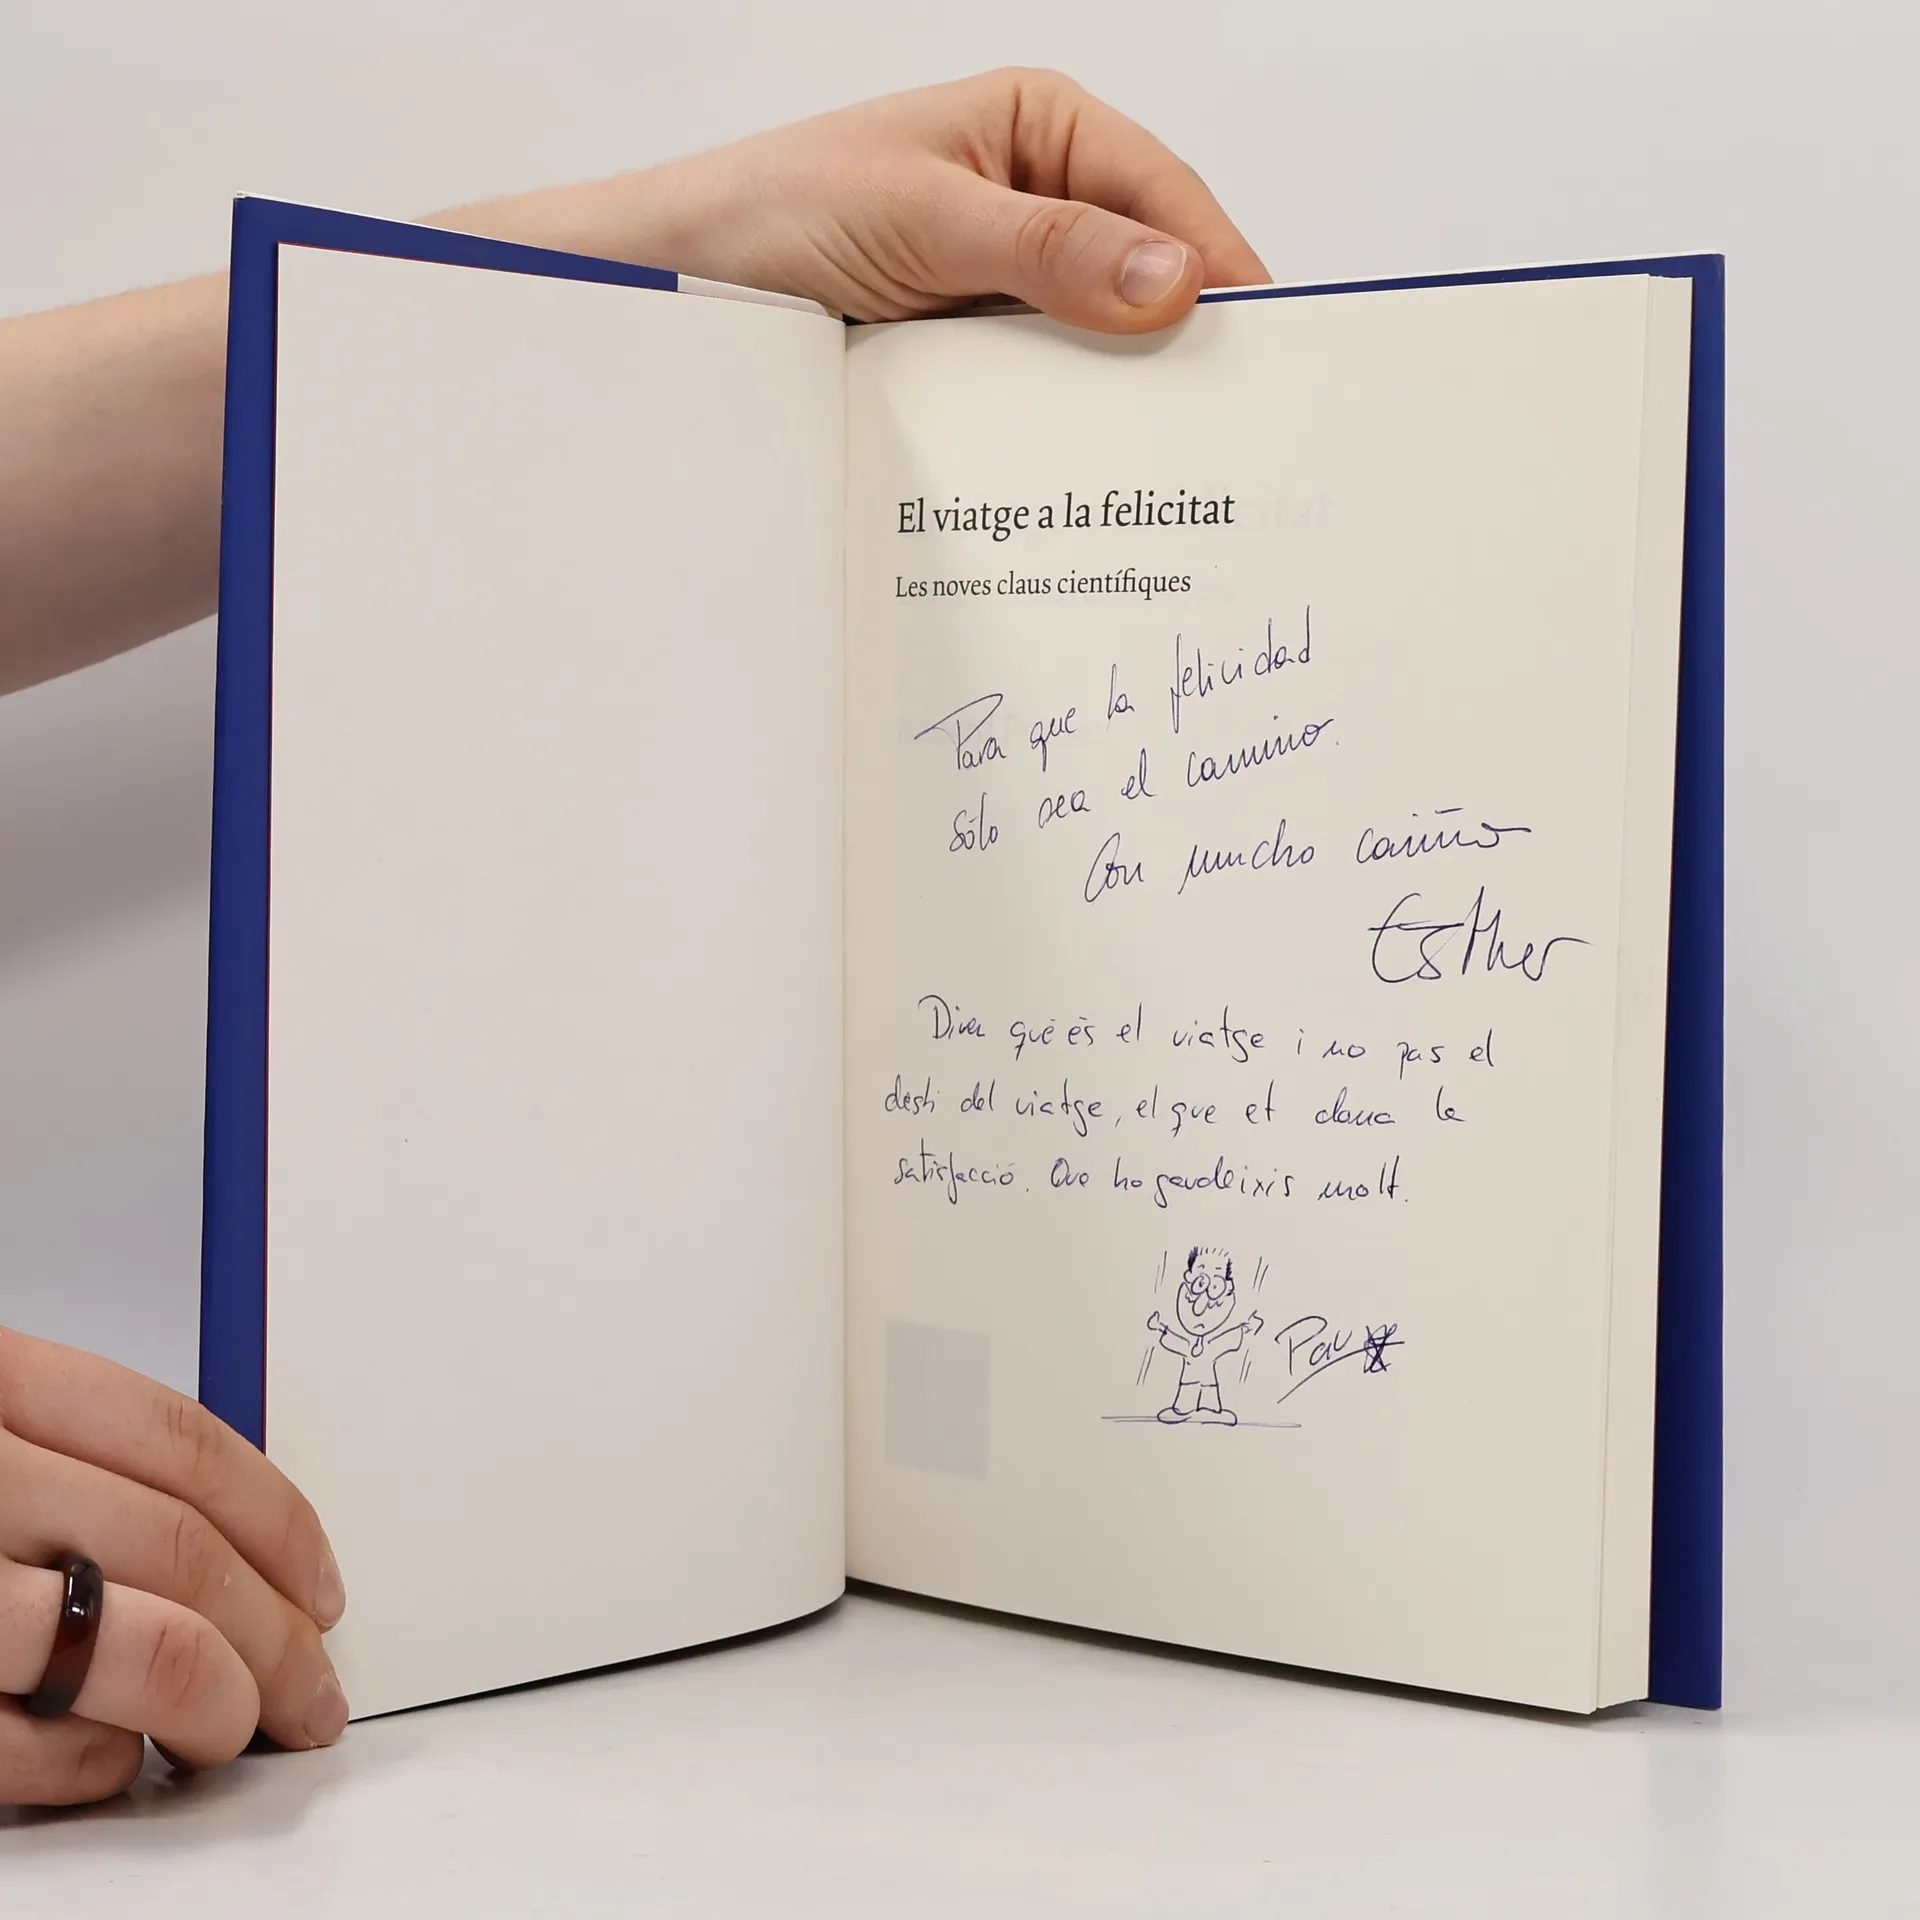 El viatge a la felicitat
Les noves claus científiques
Para que la felicidad
sólo sea el camino.
Con mucho cariño
Esther
Diuen què és el viatge i no pas el
destí del viatge, el que et dona la
satisfacció. Que ho gaudeixis molt.
Pau